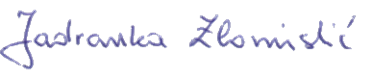 Jadranka Zlomislić